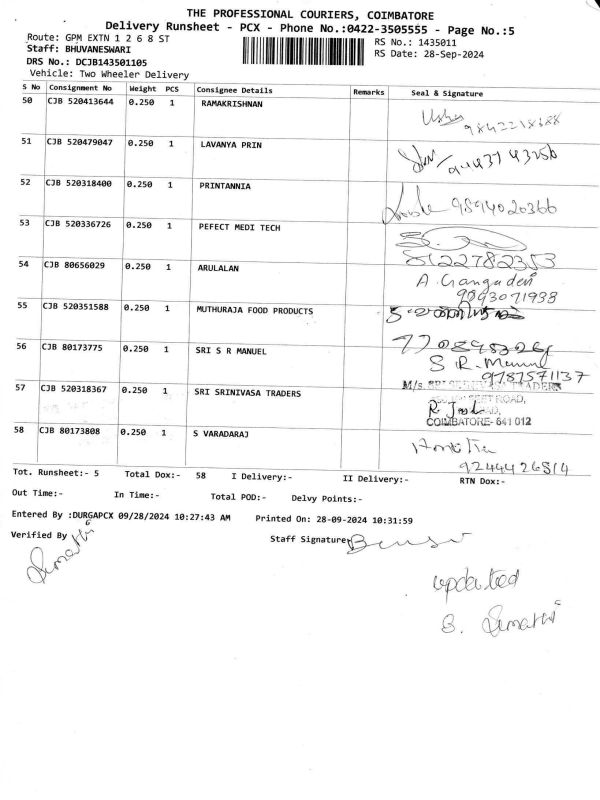 THE PROFESSIONAL COURIERS, COIMBATORE
Delivery Runsheet - PCX - Phone No.:0422-3505555 - Page No.:5
Route: GPM EXTN 1 2 6 8 ST RS No.: 1435011
Staff: BHUVANESWARI RS Date: 28-Sep-2024
DRS No.: DCJB143501105
Vehicle: Two Wheeler Delivery
S No Consignment No Weight PCS Consignee Details Remarks Seal & Signature
50 CJB 520413644 0.250 1 RAMAKRISHNAN
51 CJB 520479047 0.250 1 LAVANYA PRIN
52 CJB 520318400 0.250 1 PRINTANNIA
9894020366
53 CJB 520336726 0.250 1 PEFECT MEDI TECH
8122782353
54 CJB 80656029 0.250 1 ARULALAN
A. Gangadevi
9293071938
55 CJB 520351588 0.250 1 MUTHURAJA FOOD PRODUCTS
56 CJB 80173775 0.250 1 SRI S R MANUEL
S. R.
9787571137
57 CJB 520318367 0.250 1 SRI SRINIVASA TRADERS
M/s. SRI SRINIVASA TRADERS
FEET ROAD,
COIMBATORE- 641 012
58 CJB 80173808 0.250 1 S VARADARAJ
9244426814
Tot. Runsheet:- 5 Total Dox:- 58 I Delivery:- II Delivery:- RTN Dox:-
Out Time:- In Time:- Total POD:- Delvy Points:-
Entered By :DURGAPCX 09/28/2024 10:27:43 AM Printed On: 28-09-2024 10:31:59
Verified By Staff Signature
Sumathi
updated
B. Sumathi